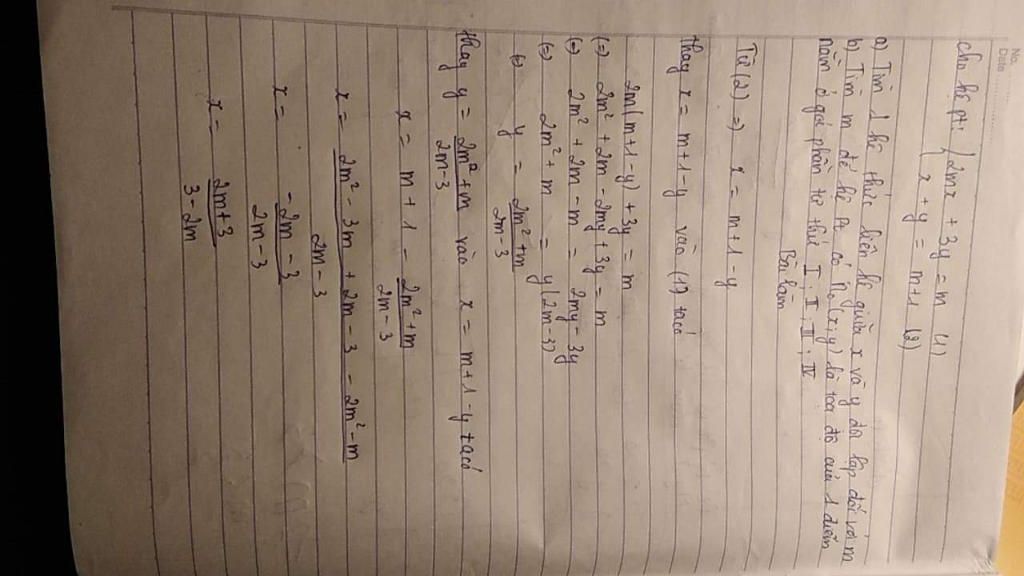 No.
Date
Cho hệ pt: { 2mx + 3y = m (1)
x + y = m+1 (2)
a) Tìm 1 hệ thức liên hệ giữa x và y độc lập đối với m
b) Tìm m để hệ pt có n0 (x;y) là toạ độ của 1 điểm
nằm ở góc phần tư thứ I, II, III, IV
Bài làm
Từ (2) => x = m+1-y
thay x = m+1-y vào (1) ta có
2m(m+1-y) + 3y = m
(=) 2m² + 2m - 2my + 3y = m
(=) 2m² + 2m - m = 2my - 3y
(=) 2m² + m = y(2m-3)
(=) y = \frac{2m²+m}{2m-3}
thay y = \frac{2m²+m}{2m-3} vào x = m+1-y ta có
x = m + 1 - \frac{2m²+m}{2m-3}
x = \frac{2m² - 3m + 2m - 3 - 2m² - m}{2m-3}
x = \frac{-2m-3}{2m-3}
x = \frac{2m+3}{3-2m}